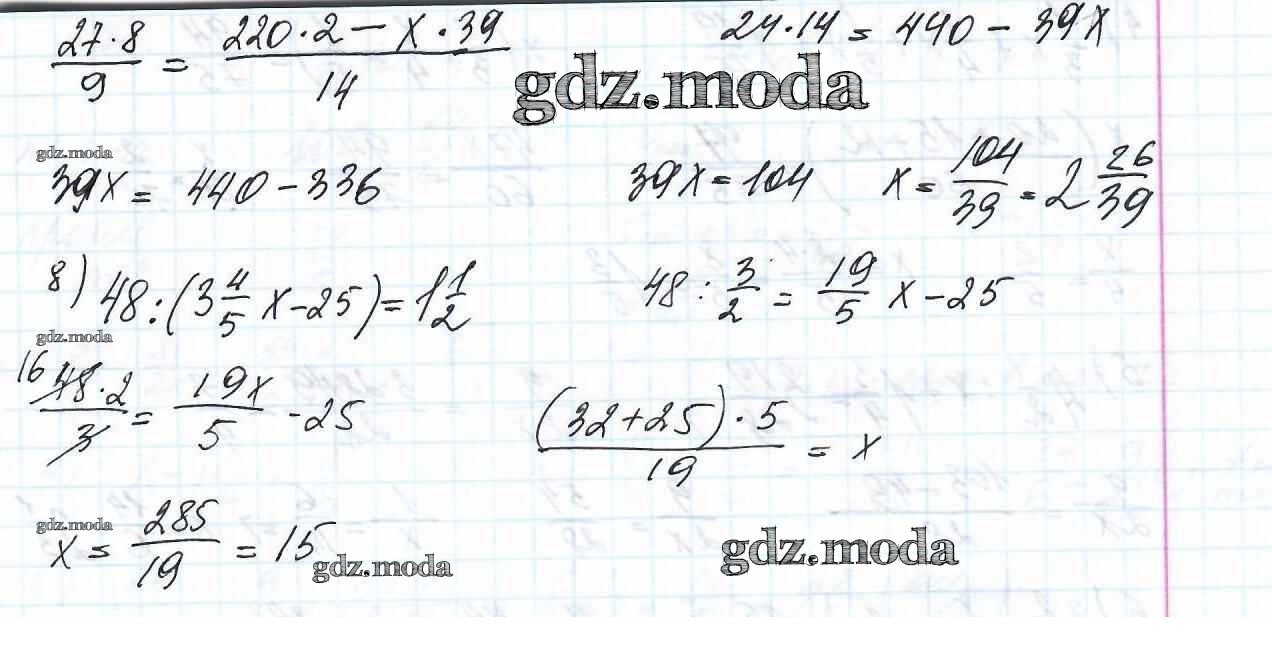 27·8/9 = (220·2 − x·39)/14    24·14 = 440 − 39x
gdz.moda
gdz.moda
39x = 440 − 336    39x = 104    x = 104/39 = 2 26/39
8) 48 : (3 4/5 x − 25) = 1 1/2    48 : 3/2 = 19/5 x − 25
gdz.moda
16 48·2/3 = 19x/5 − 25    (32 + 25)·5/19 = x
gdz.moda
x = 285/19 = 15
gdz.moda gdz.moda